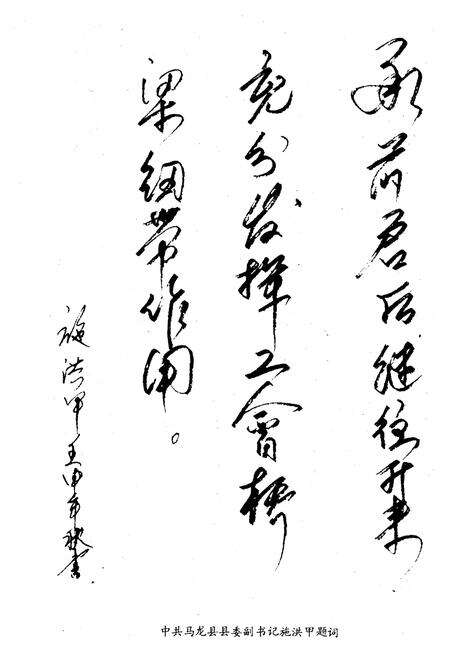 承前启后继往开来
充分发挥工会桥
梁纽带作用。
施洪甲 壬申年秋书
中共马龙县县委副书记施洪甲题词